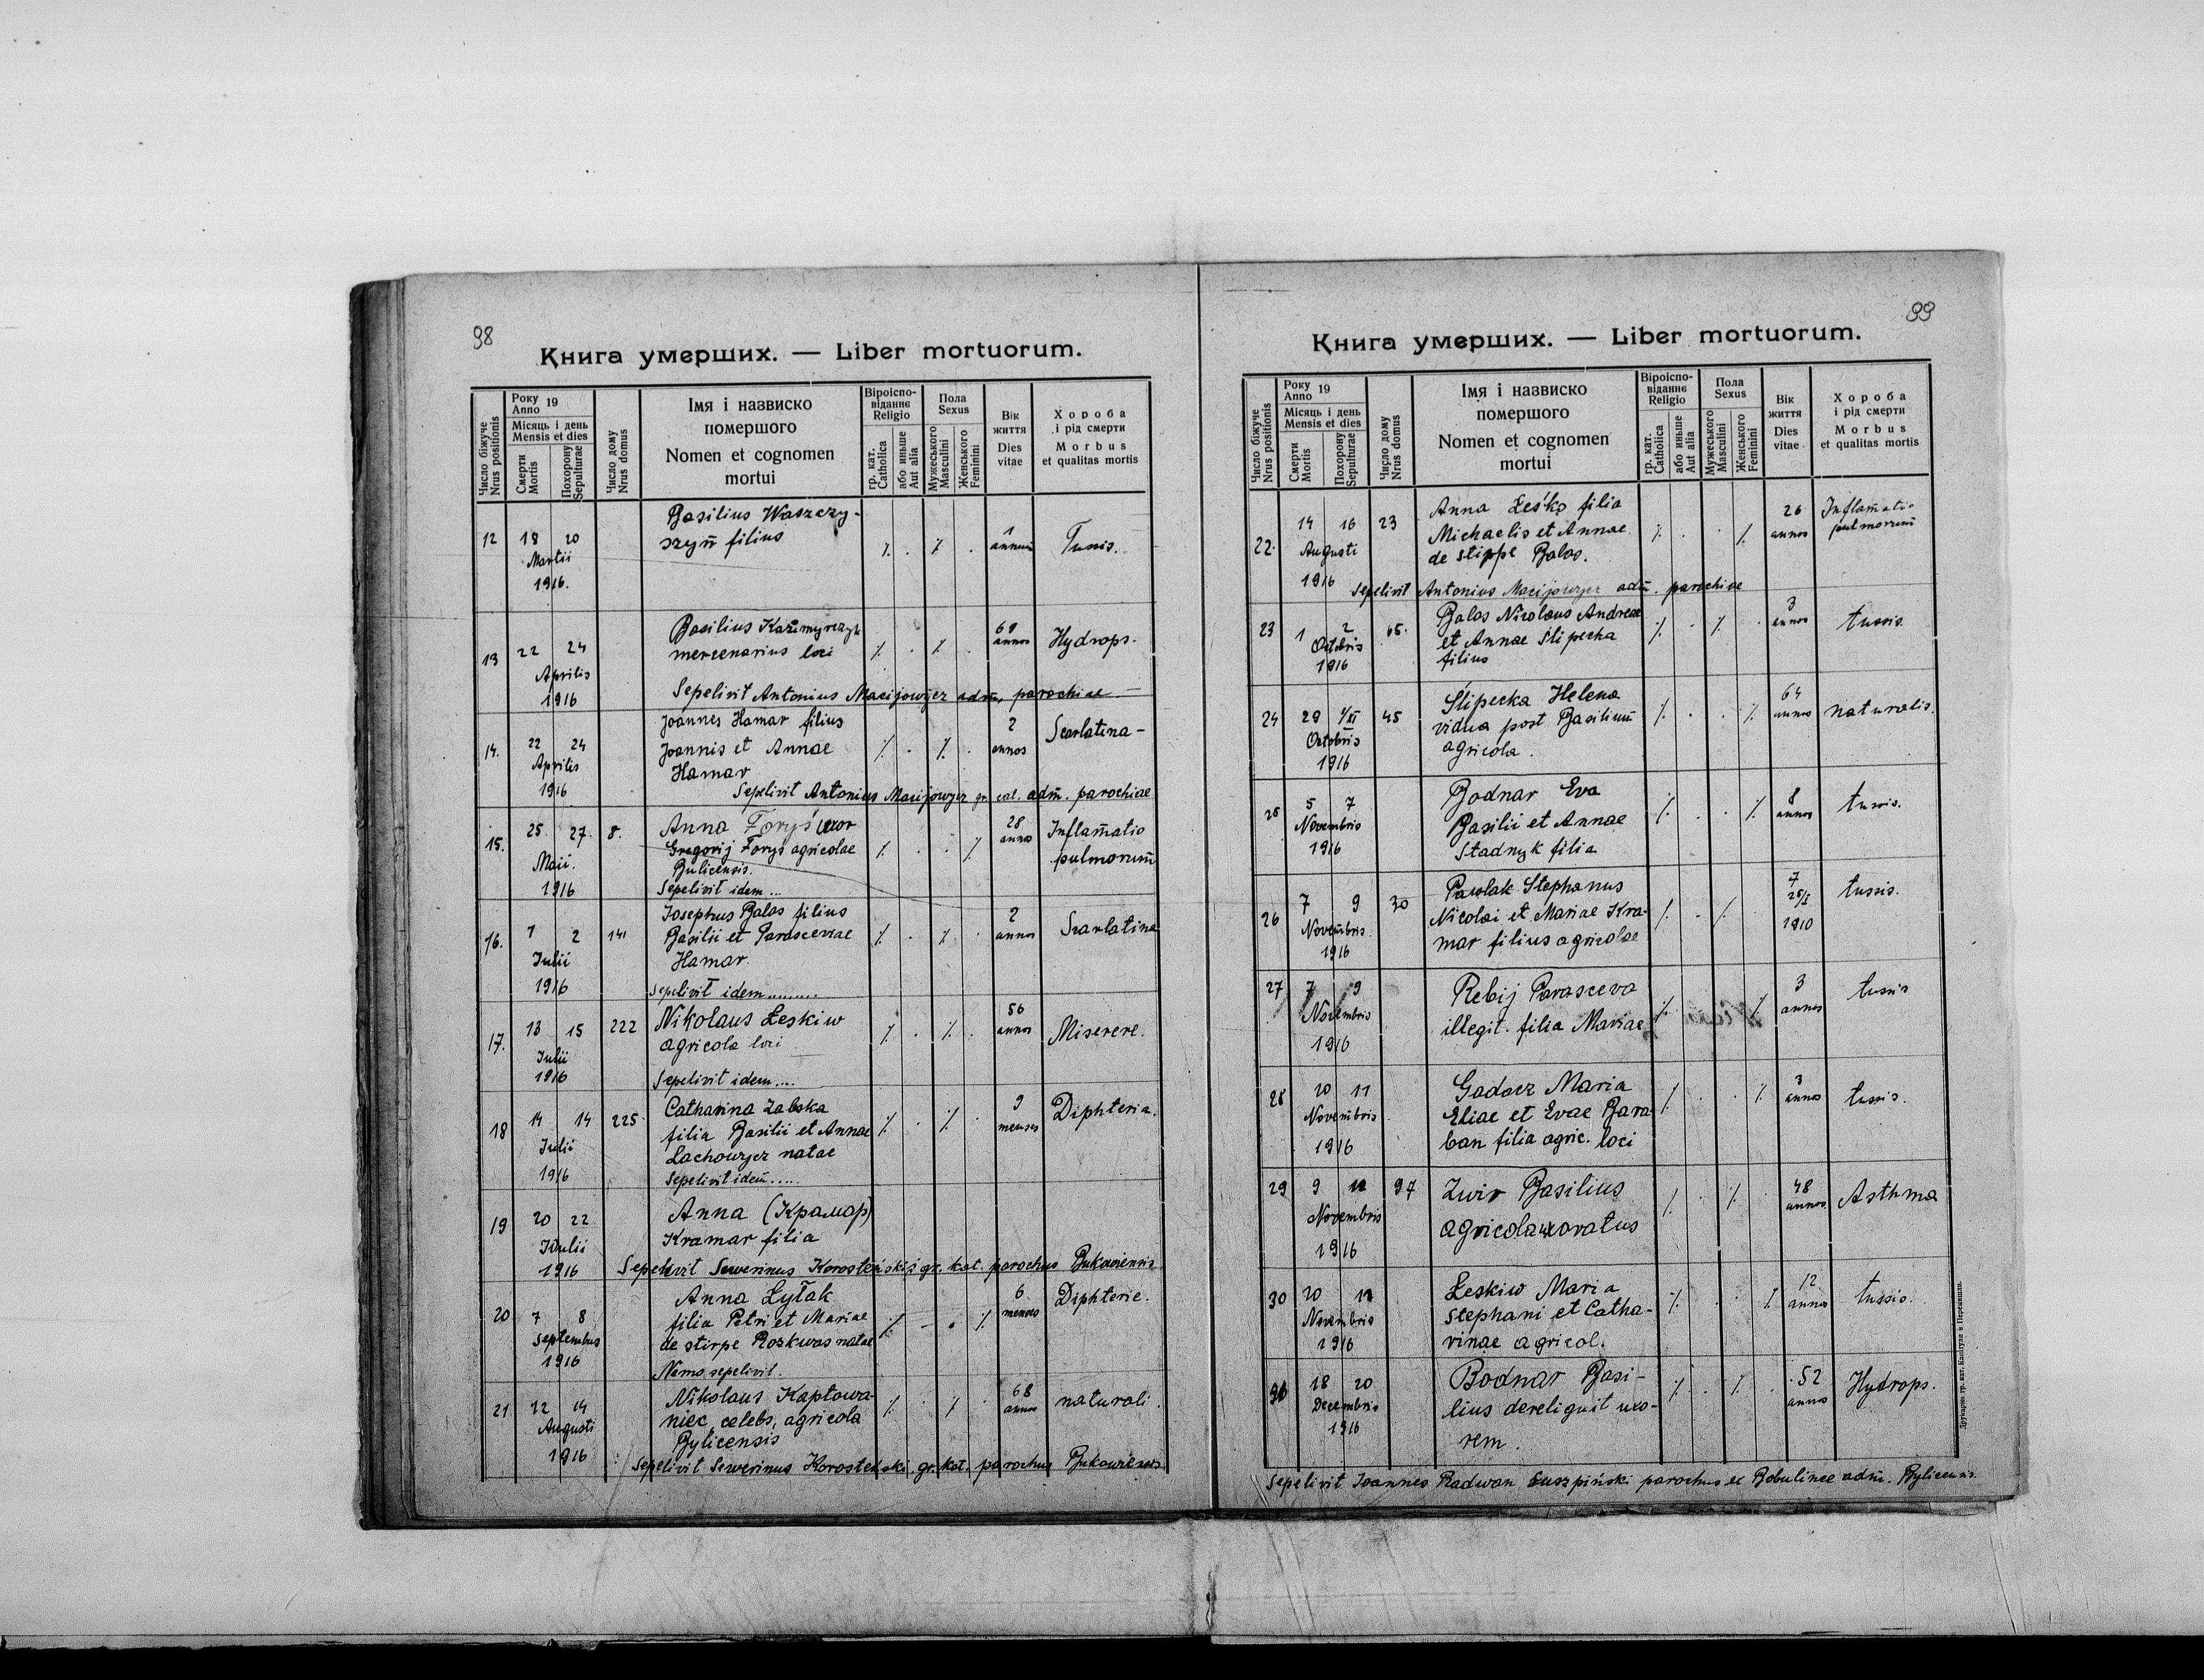 98
Книга умерших. — Liber mortuorum.
Число біжуче Nrus positionis
Року Anno 19
Місяць і день Mensis et dies
Смерти Mortis
Похорону Sepulturae
Число дому Nrus domus
Імя і назвиско помершого
Nomen et cognomen mortui
Віроісповіданнє Religio
гр. кат. Catholica
або иньше Aut alia
Пола Sexus
Мужеського Masculini
Женського Feminini
Вік життя Dies vitae
Хороба і рід смерти
Morbus et qualitas mortis
12 18 20 Martii 1916.
Basilius Waszczy-
szyn̄ filius
1 annum̄ Tussis.
13 22 24 Aprilis 1916
Basilius Kazimyrczyk
mercenarius loci
69 annos Hydrops.
Sepelivit Antonius Macijowycz adm̄. parochiae
14. 22 24 Aprilis 1916
Joannes Hamar filius
Joannis et Annae
Hamar
2 annos Scarlatina
Sepelivit Antonius Macijowycz gr. cat. adm̄. parochiae
15. 25. 27. Maii. 1916 8.
Anna Foryś uxor
Gregorij Foryś agricolae
Bulicensis.
Sepelivit idem...
28 annos Inflam̄atio pulmonum̄
16. 1 2 Julii 1916 141
Josephus Balas filius
Basilii et Parascevae
Hamar.
Sepelivit idem.........
2 annos Scarlatina
17. 13 15 Julii 1916 222
Nikolaus Łeskiw
agricola loci
Sepelivit idem....
56 annos Miserere.
18 14 14 Julii 1916 225
Catharina Zabska
filia Basilii et Annae
Lachowycz natae
Sepelivit idem̄.....
9 menses Diphteria.
19 20 22 Julii 1916
Anna (Крамар)
Kramar filia
Sepelivit Sewerinus Korosteński gr. kat. parochus Bukowiensis
20 7 8 Septembris 1916
Anna Łytak
filia Petri et Mariae
de stirpe Roskwas natae
Nemo sepelivit.
6 menses Diphterie.
21 12 14 Augusti 1916
Nikolaus Kaptowa-
niec, celebs, agricola
Bylicensis
68 annos naturali.
Sepelivit Sewerinus Korosteński gr. kat. parochus Bukowiensis
99
Книга умерших. — Liber mortuorum.
Число біжуче Nrus positionis
Року Anno 19
Місяць і день Mensis et dies
Смерти Mortis
Похорону Sepulturae
Число дому Nrus domus
Імя і назвиско помершого
Nomen et cognomen mortui
Віроісповіданнє Religio
гр. кат. Catholica
або иньше Aut alia
Пола Sexus
Мужеського Masculini
Женського Feminini
Вік життя Dies vitae
Хороба і рід смерти
Morbus et qualitas mortis
22. 14 16 Augusti 1916 23
Anna Łeśko filia
Michaelis et Annae
de stippe Balas.
26 annos Inflam̄atio pulmonum̄
Sepelivit Antonius Macijowycz adm̄. parochiae
23 1 2 Octobris 1916 65.
Balas Nicolaus Andreae
et Annae Slipecka
filius
3 annos tussis.
24 29 1/XI Octobris 1916 45
Slipecka Helena
vidua post Basilium̄
agricola.
64 annos naturalis.
25 5 7 Novembris 1916
Bodnar Eva
Basilii et Annae
Stadnyk filia
8 annos tussis.
26 7 9 Novembris 1916 30
Pawlak Stephanus
Nicolai et Mariae Kra-
mar filius agricolae
7 25/I 1910 tussis.
27 7 9 Novembris 1916
Rebij Parasceva
illegit. filia Mariae
3 annos tussis
28 10 11 Novembris 1916
Gadacz Maria
Eliae et Evae Bara-
ban filia agric. loci
3 annos tussis.
29 9 11 Novembris 1916 97
Zwir Basilius
agricola uxoratus
48 annos Asthma
30 10 11 Novembris 1916
Łeskiw Maria
Stephani et Catha-
rinae agricol.
12 annos tussis.
31 18 20 Decembris 1916
Bodnar Basi-
lius dereliquit uxo-
rem.
52 annos Hydrops.
Sepelivit Joannes Radwan Łuszpiński parochus ex Bobulince adm̄. Bylicensis
Друкарня гр. кат. Капітули в Перемишли.